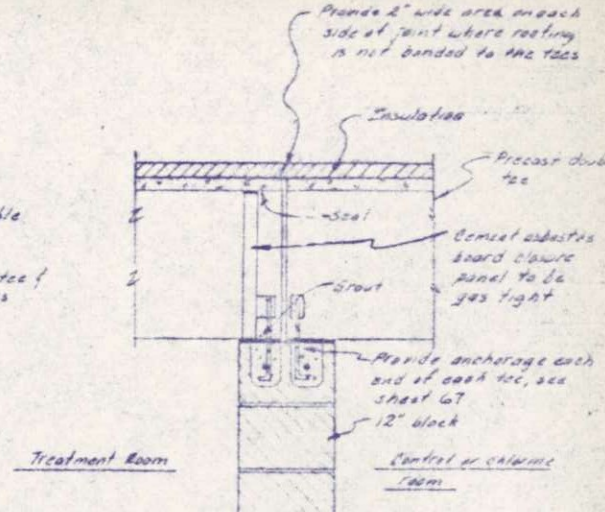 Provide 2" wide area on each
side of joint where roofing
is not bonded to the tees
Insulation
Precast doub
tee
Seal
Cement asbestos
board closure
panel to be
gas tight
tee &
Grout
Provide anchorage each
end of each tee, see
sheet 67
12" block
Treatment Room
Control or chlorine
room